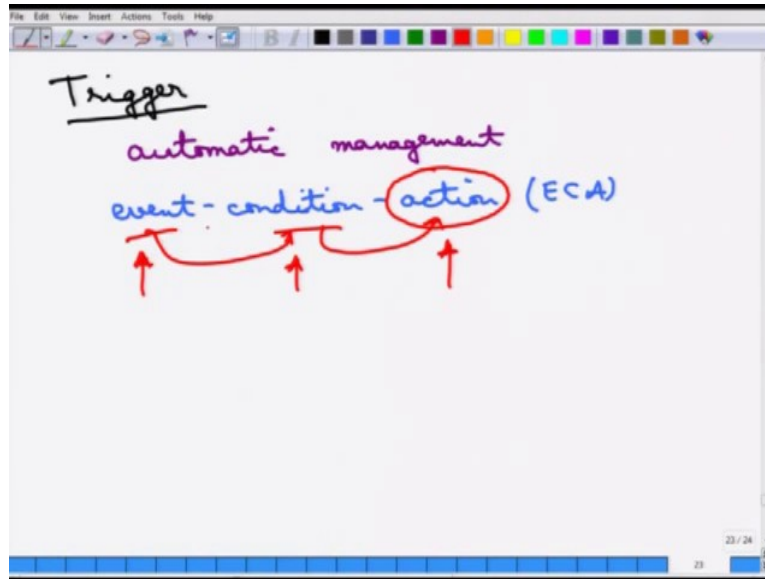 File Edit View Insert Actions Tools Help
B I
Trigger
automatic management
event - condition - action (ECA)
23 / 24
23